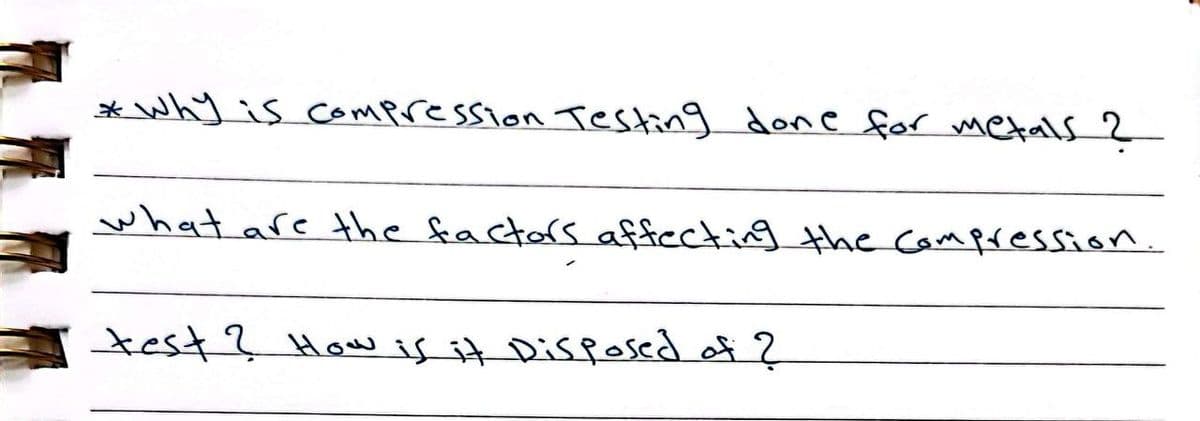 * Why is compression Testing done for metals ?
what are the factors affecting the compression.
test ? How is it Disposed of ?